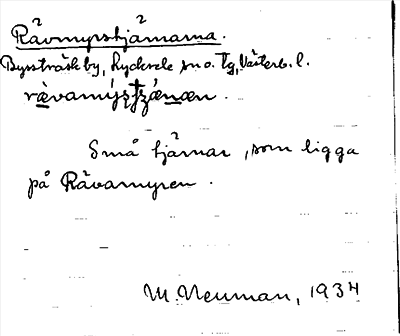 Rävmyrstjärnarna.
Bysträsk by, Lycksele sn o. tg, Västerb. l.
rävamýrstjǽnæn.
Små tjärnar, som ligga
på Rävamyren.
M. Neuman, 1934